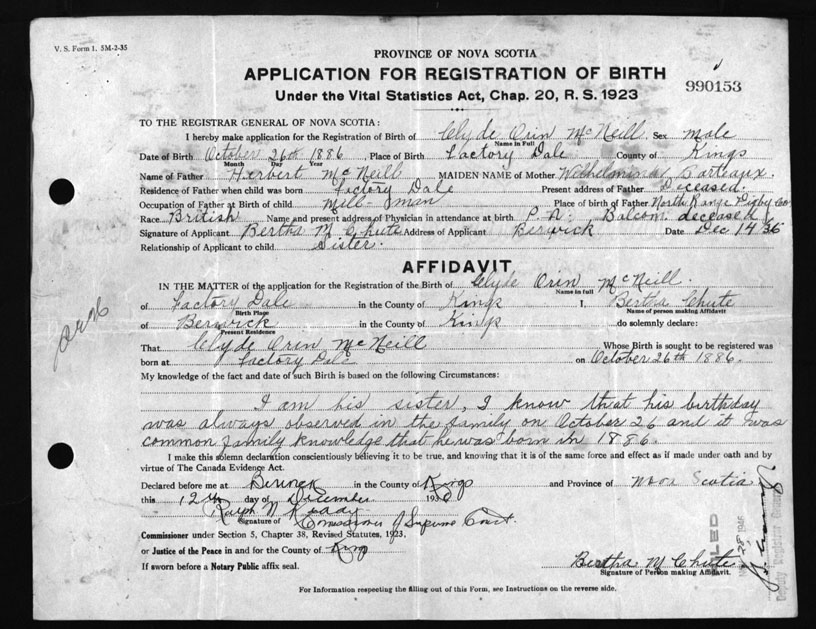 V. S. Form 1. 5M-2-35
PROVINCE OF NOVA SCOTIA
APPLICATION FOR REGISTRATION OF BIRTH
990153
Under the Vital Statistics Act, Chap. 20, R. S. 1923
TO THE REGISTRAR GENERAL OF NOVA SCOTIA:
I hereby make application for the Registration of Birth of Clyde Orin McNeill. Sex Male
Name in Full
Date of Birth October 26th 1886 Place of Birth Factory Dale County of Kings
Month Day Year
Name of Father Herbert McNeill MAIDEN NAME of Mother Wilhelmina
Residence of Father when child was born Factory Dale Present address of Father Deceased.
Occupation of Father at Birth of child Mill-man Place of birth of Father North Range Digby Co
Race British Name and present address of Physician in attendance at birth P. N. Balcom. deceased
Signature of Applicant Bertha M Chute Address of Applicant Berwick Date Dec 14 36
Relationship of Applicant to child Sister.
AFFIDAVIT
IN THE MATTER of the application for the Registration of the Birth of Clyde Orin McNeill.
Name in full
of Factory Dale in the County of Kings I, Bertha Chute
Birth Place Name of person making Affidavit
of Berwick in the County of Kings do solemnly declare:
Present Residence
That Clyde Orin McNeill Whose Birth is sought to be registered was
born at Factory Dale on October 26th 1886.
My knowledge of the fact and date of such Birth is based on the following Circumstances:
I am his sister, I know that his birthday
was always observed in the family on October 26 and it was
common family knowledge that he was born in 1886.
I make this solemn declaration conscientiously believing it to be true, and knowing that it is of the same force and effect as if made under oath and by
virtue of The Canada Evidence Act.
Declared before me at Berwick in the County of Kings and Province of Nova Scotia
this 12th day of December 1936
Ralph N
Signature of Commissioner of Supreme Court.
Commissioner under Section 5, Chapter 38, Revised Statutes, 1923,
or Justice of the Peace in and for the County of Kings
If sworn before a Notary Public affix seal.
Bertha M Chute
Signature of Person making Affidavit.
For Information respecting the filling out of this Form, see Instructions on the reverse side.